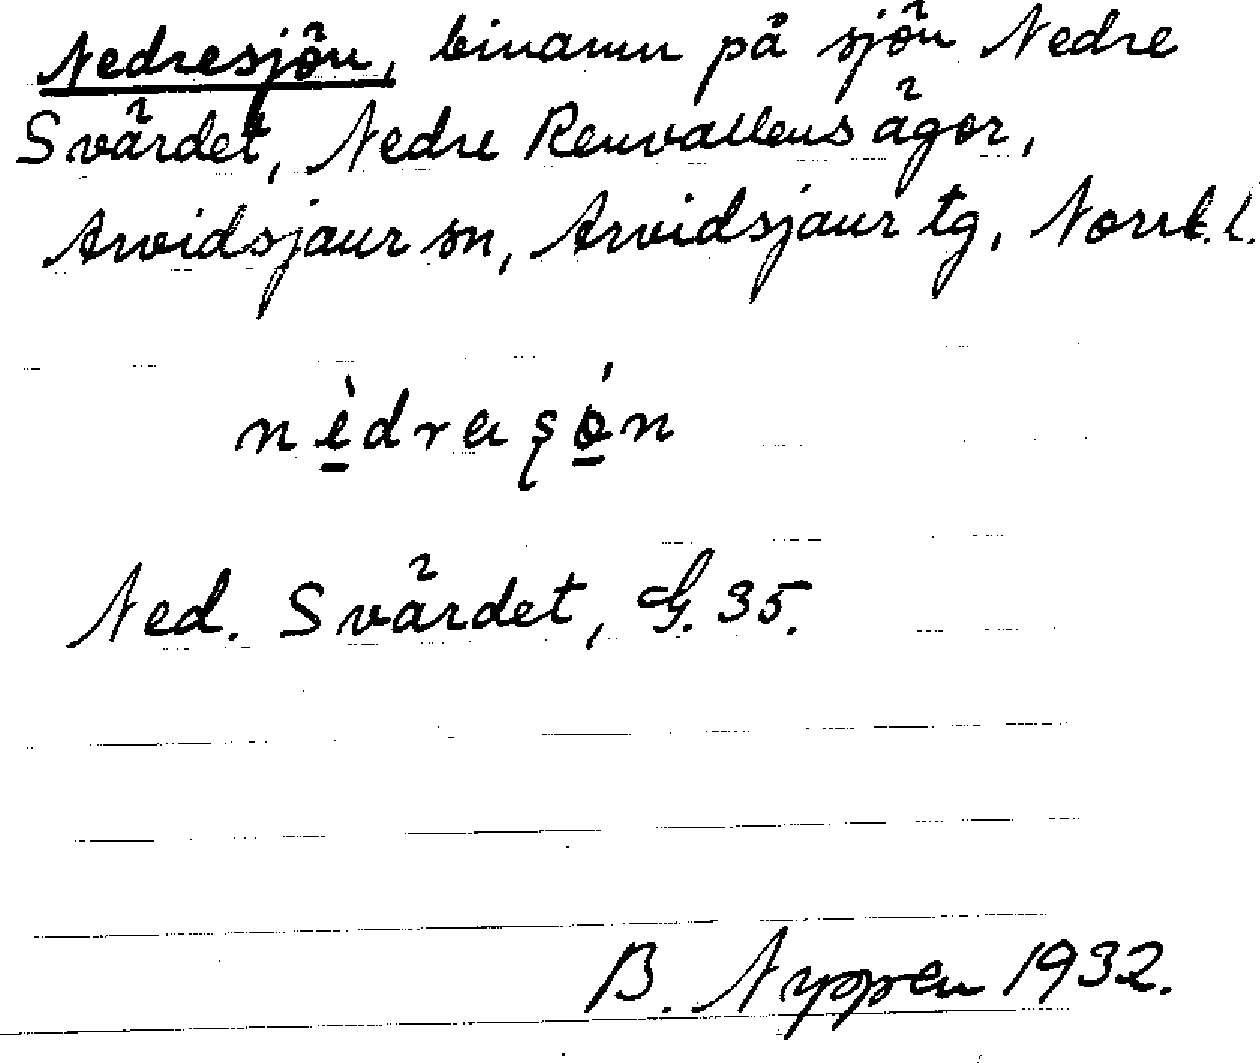 Nedresjön, binamn på sjön Nedre
Svärdet, Nedre Renvallens ägor,
Arvidsjaur sn, Arvidsjaur tg, Norrb.l.
nèdraşǿn
Ned. Svärdet, G. 35.
B. Nyppen 1932.